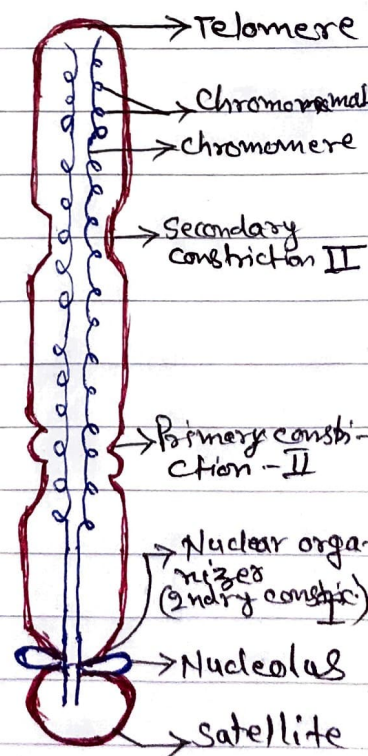 Telomere
Chromonemal
Chromomere
Secondary
constriction II
Primary constri-
ction - II
Nuclear orga-
nizer
(2ndry constric.)
I
Nucleolus
Satellite